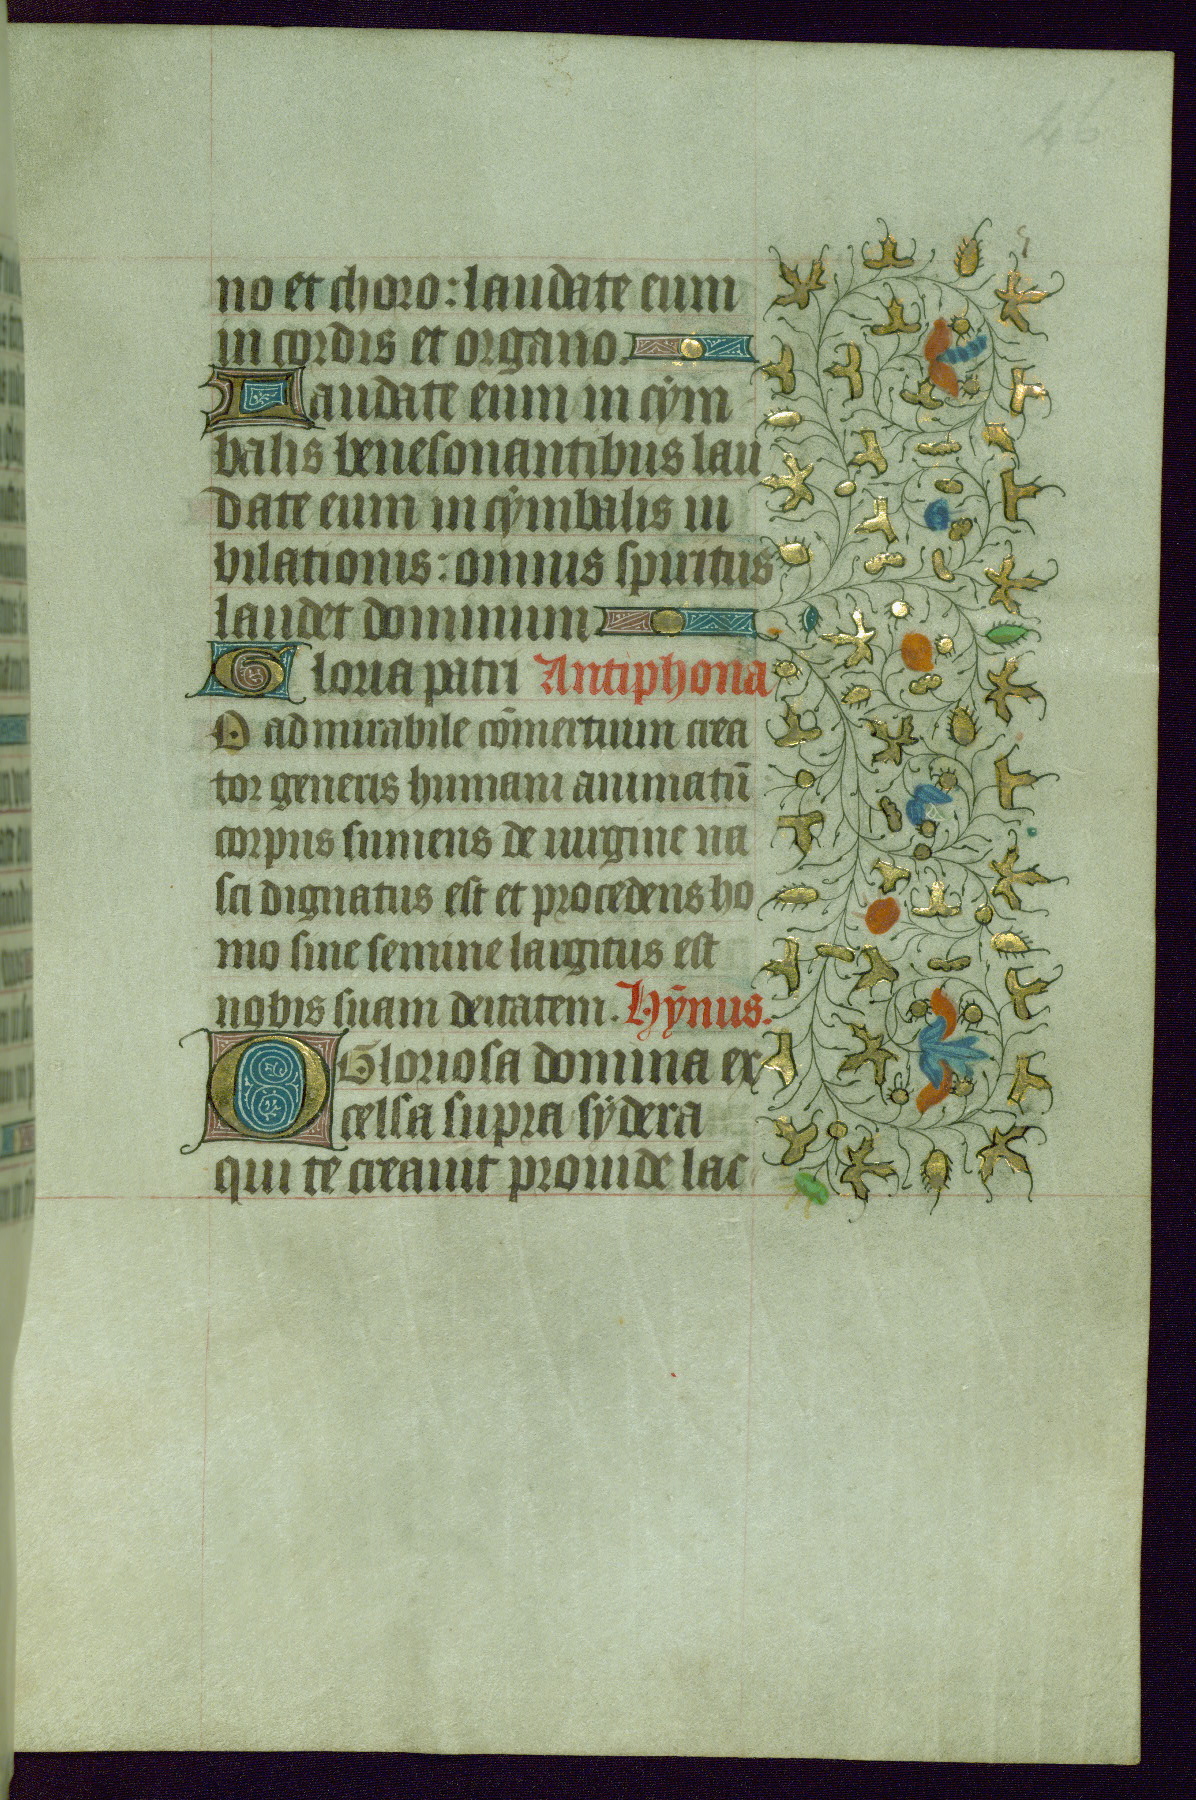 46
no et choro: laudate eum
in cordis et organo.
Laudate eum in cẏm
balis benesonantibus lau
date eum in cẏmbalis iu
bilationis: omnis spiritus
laudet dominum
Gloria patri Antiphona
O admirabile cōmertium crea
tor generis humani animatū
corpus sumens de uirgine na
sci dignatus est et procedens ho
mo sine semine largitus est
nobis suam deitatem. Hẏ̄nus.
O Gloriosa domina ex
celsa supra sẏdera
qui te creauit prouide lac